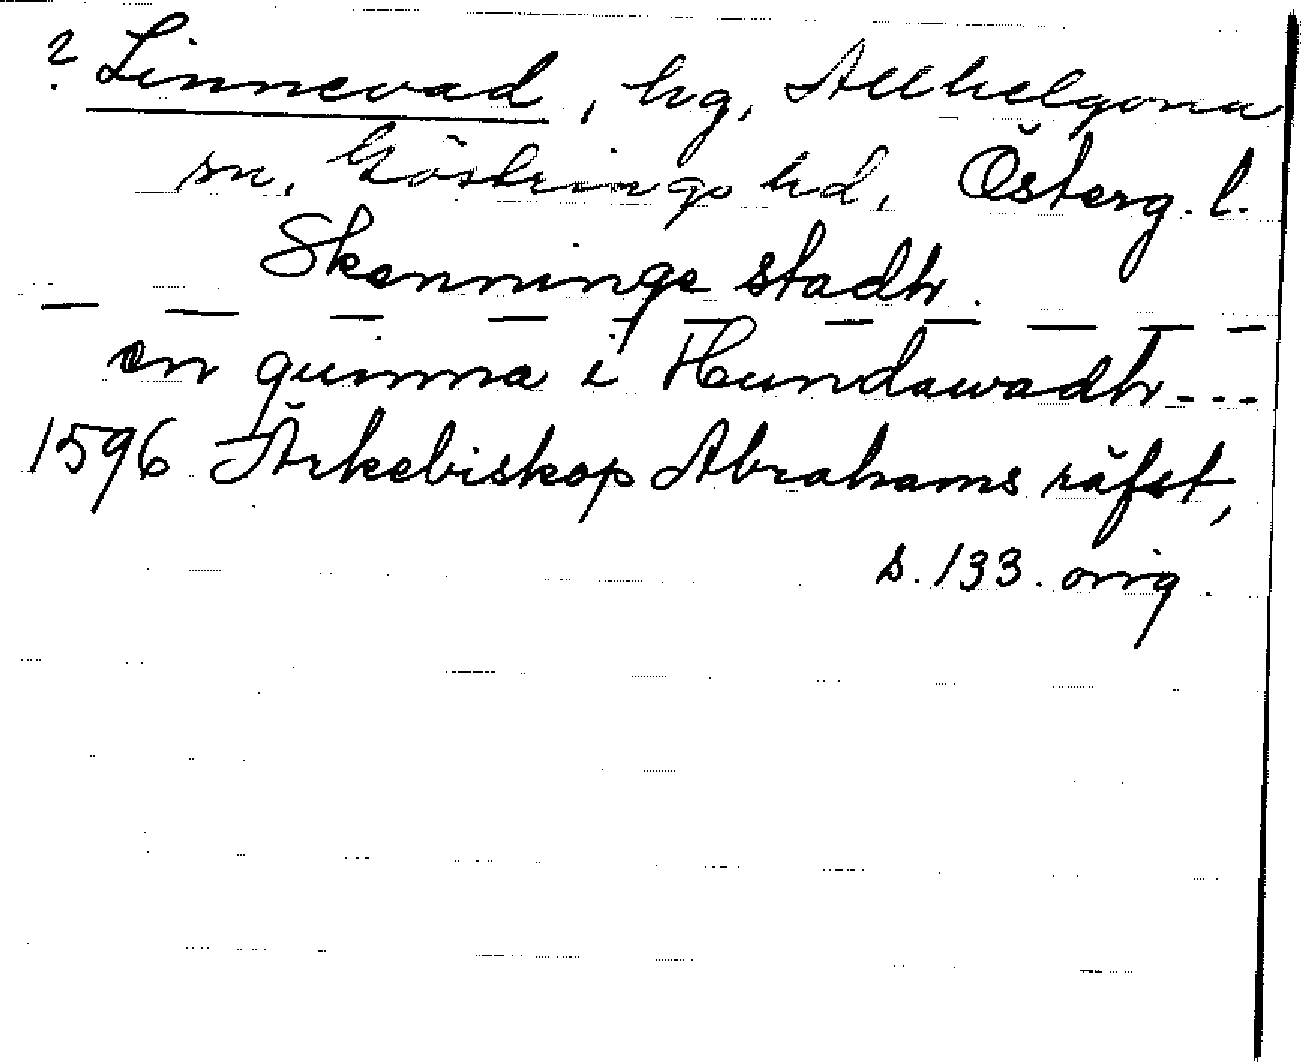 ? Linnevad, hg, Allhelgona
sn, Göstrings hd, Österg. l.
Skenninge stadh.
— — — — — — — — — — —
en quinna i Hundawadh - - -
1596 Ärkebiskop Abrahams räfst,
s. 133. orig.